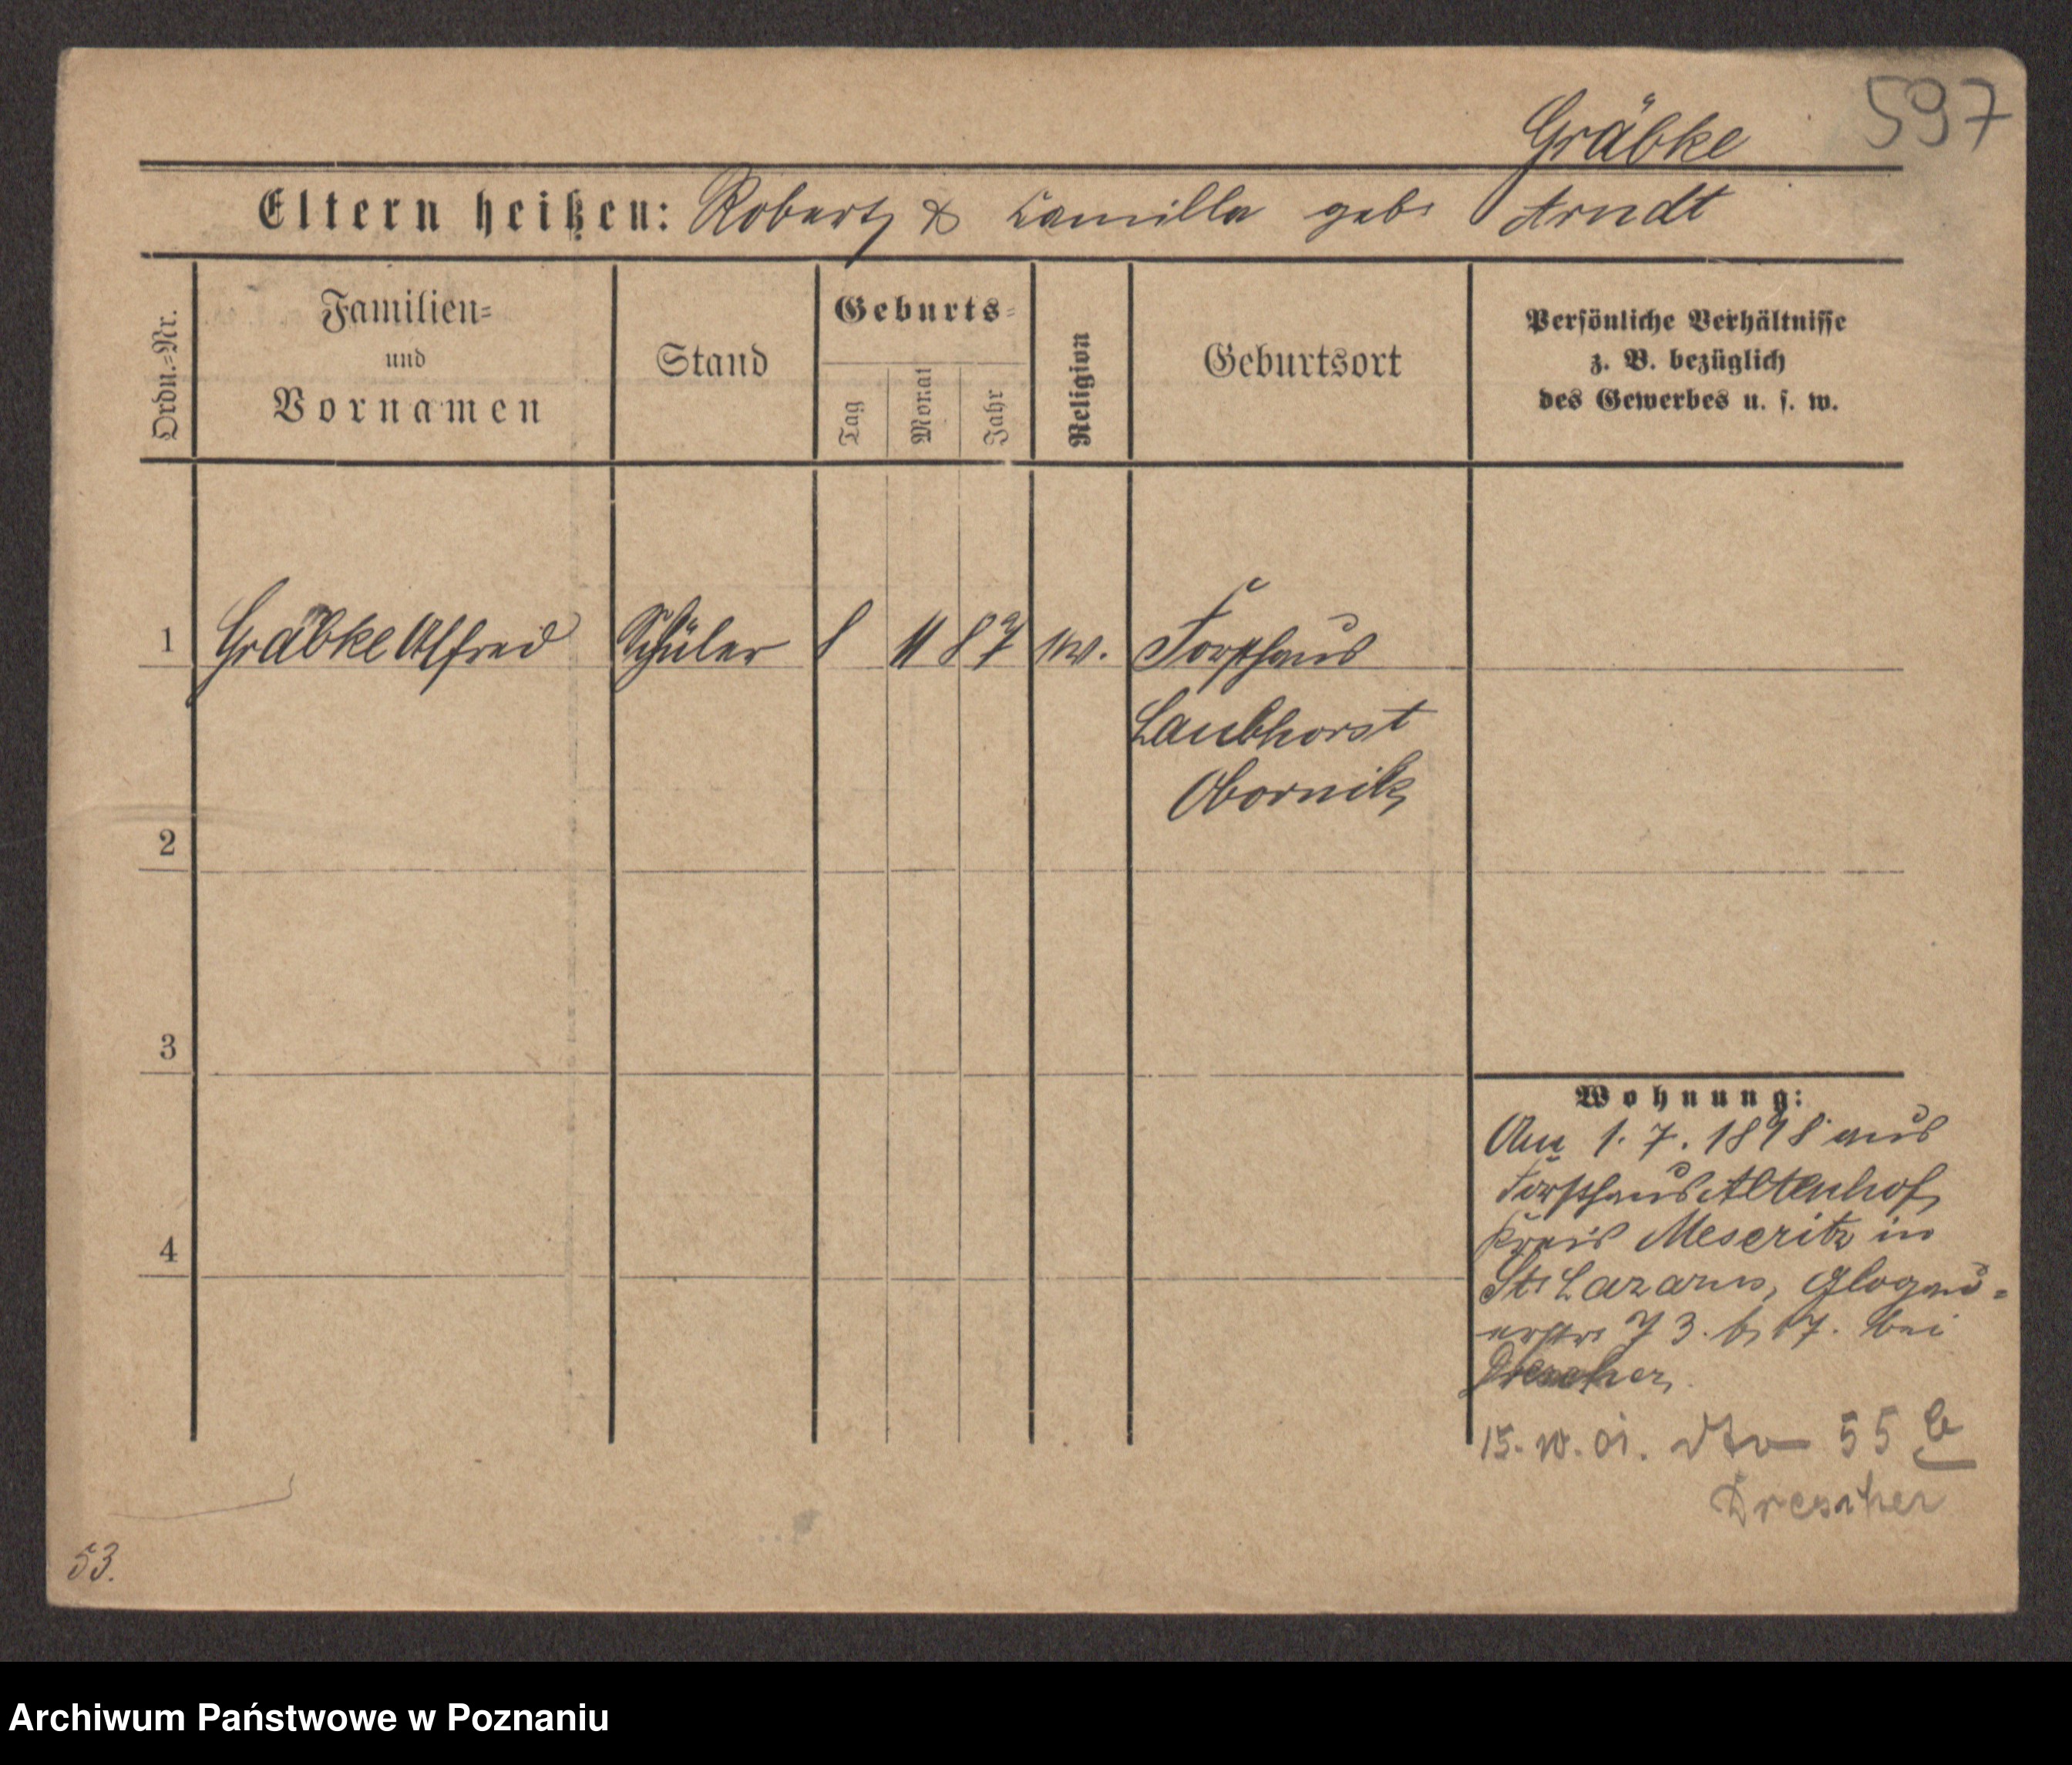 597
Gräbke
Eltern heißen: Robert & Camilla geb. Arndt
Ordn.=Nr.
Familien=
und
Vornamen
Stand
Geburts=
Tag
Monat
Jahr
Religion
Geburtsort
Persönliche Verhältnisse
z. B. bezüglich
des Gewerbes u. s. w.
1 Gräbke Alfred Schüler 8 11 87 Forsthaus
Laubhorst
Obornik
2
3
4
Wohnung:
Am 1. 7. 1898 aus
Forsthaus Altenhof,
Kreis Meseritz in
St. Lazarus, Glogau=
erstr. 73. bei
Drescher.
15. 10. 01. dto 55
Drescher
53.
Archiwum Państwowe w Poznaniu